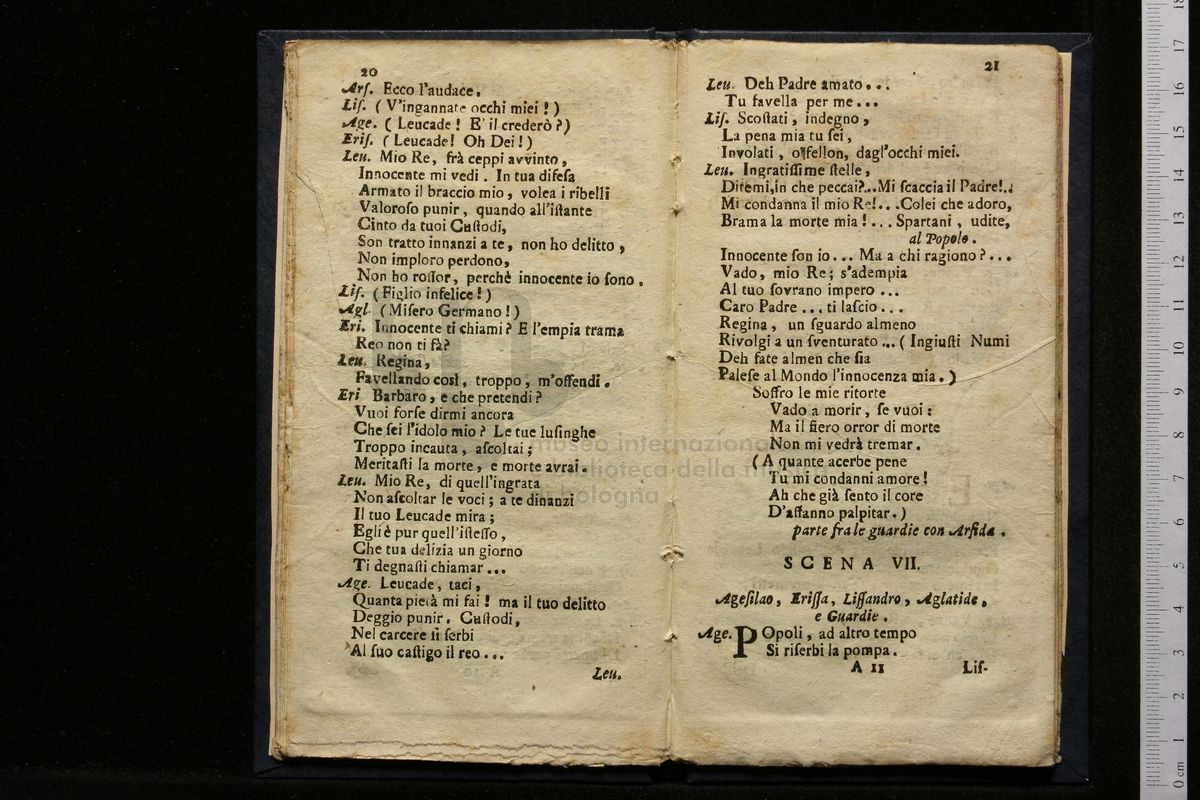 20
Arſ. Ecco l'audace.
Liſ. (V'ingannate occhi miei!)
Age. (Leucade! E' il crederò?)
Eriſ. (Leucade! Oh Dei!)
Leu. Mio Re, frà ceppi avvinto,
Innocente mi vedi. In tua difeſa
Armato il braccio mio, volea i ribelli
Valoroſo punir, quando all'iſtante
Cinto da tuoi Cuſtodi,
Son tratto innanzi a te, non ho delitto,
Non imploro perdono,
Non ho roſſor, perchè innocente io ſono.
Liſ. (Figlio infelice!)
Agl. (Miſero Germano!)
Eri. Innocente ti chiami? E l'empia trama
Reo non ti fà?
Leu. Regina,
Favellando così, troppo, m'offendi.
Eri Barbaro, e che pretendi?
Vuoi forſe dirmi ancora
Che ſei l'idolo mio? Le tue luſinghe
Troppo incauta, aſcoltai;
Meritaſti la morte, e morte avrai.
Leu. Mio Re, di quell'ingrata
Non aſcoltar le voci; a te dinanzi
Il tuo Leucade mira;
Egli è pur quell'iſteſſo,
Che tua delizia un giorno
Ti degnaſti chiamar...
Age. Leucade, taci,
Quanta pietà mi fai! ma il tuo delitto
Deggio punir. Cuſtodi,
Nel carcere ſi ſerbi
Al ſuo caſtigo il reo...
Leu.
21
Leu. Deh Padre amato...
Tu favella per me...
Liſ. Scoſtati, indegno,
La pena mia tu ſei,
Involati, o fellon, dagl'occhi miei.
Leu. Ingratiſſime ſtelle,
Ditemi, in che peccai?...Mi ſcaccia il Padre!..
Mi condanna il mio Re!...Colei che adoro,
Brama la morte mia!... Spartani, udite,
al Popolo.
Innocente ſon io... Ma a chi ragiono?...
Vado, mio Re; s'adempia
Al tuo ſovrano impero...
Caro Padre... ti laſcio...
Regina, un ſguardo almeno
Rivolgi a un ſventurato... (Ingiuſti Numi
Deh fate almen che ſia
Paleſe al Mondo l'innocenza mia.)
Soffro le mie ritorte
Vado a morir, ſe vuoi:
Ma il fiero orror di morte
Non mi vedrà tremar.
(A quante acerbe pene
Tu mi condanni amore!
Ah che già ſento il core
D'affanno palpitar.)
parte fra le guardie con Arſida.
SCENA VII.
Ageſilao, Eriſſa, Liſſandro, Aglatide,
e Guardie.
Age. POpoli, ad altro tempo
Si riſerbi la pompa.
A 11 Liſ-
museo internazionale
biblioteca della musica
bologna
0 cm 1 2 3 4 5 6 7 8 9 10 11 12 13 14 15 16 17 18